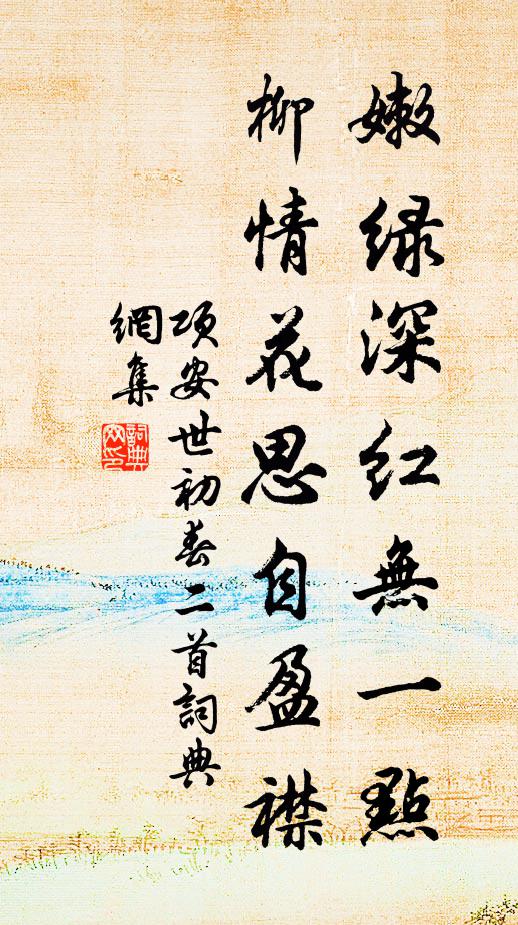 嫩绿深红無一點
柳情花思自盈襟
项安世初春二首詞典
網集
詞典